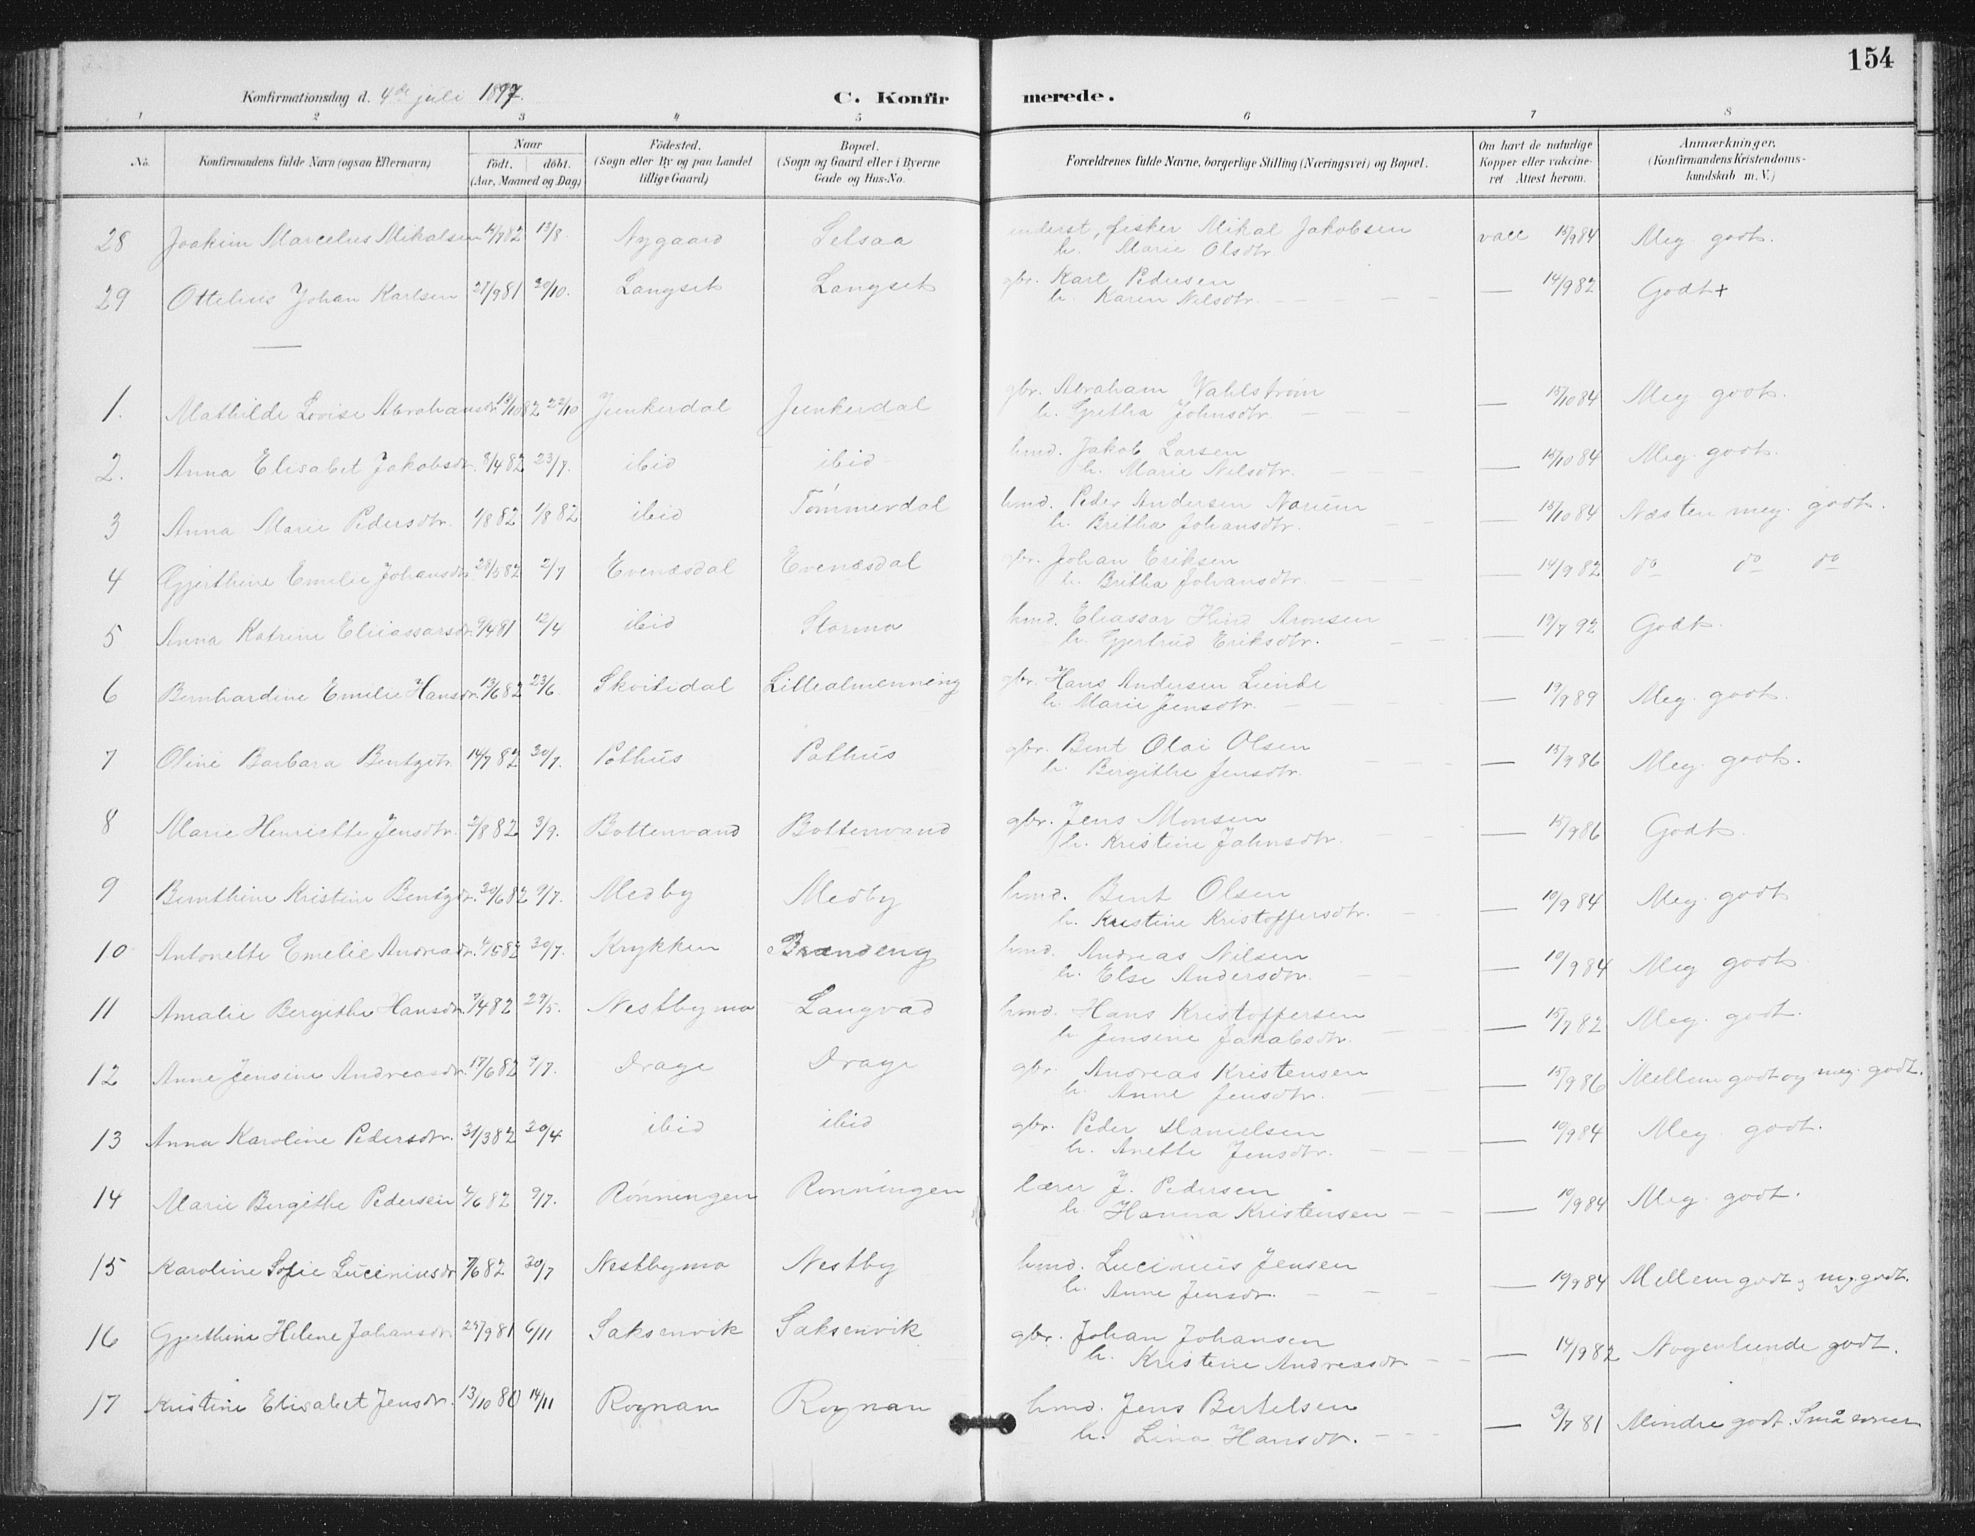 154
Konfirmationsdag d. 4de juli 1897.
C. Konfirmerede.
1 2 3 4 5 6 7 8
No. Konfirmandens fulde Navn (ogsaa Efternavn) Naar födt. döbt. (Aar, Maaned og Dag) Födested. (Sogn eller By og paa Landet tillige Gaard) Bopæl. (Sogn og Gaard eller i Byerne Gade og Hus-No. Forældrenes fulde Navne, borgerlige Stilling (Næringsvei) og Bopæl. Om havt de naturlige Kopper eller vakcineret Attest herom. Anmærkninger. (Konfirmandens Kristendomskundskab m.V.)
28 Joakim Marcelius Mikalsen 14/7 82 13/8. Nygaard Selsaa inderst, fisker Mikal Jakobsen vacc 15/9 84 Meg. godt.
h. Marie Olsdtr
29 Ottelius Johan Karlsen 27/9 81 20/10. Langset Langset gbr. Karl Pedersen — 14/9 82 Godt+
h. Karen Nilsdtr.
1. Mathilde Lovise Abrahamsdr 13/10 82 22/10 Junkerdal Junkerdal gbr. Abraham Wahlstrøm — 15/10 84 Meg godt.
h. Gretha Johnsdtr.
2. Anna Elisabet Jakobsdr. 8/4 82 23/7. ibid ibid hmd. Jakob Larsen — 15/10 84 Meg. godt.
h. Marie Nilsdtr.
3 Anna Marie Pedersdtr. 1/8 82 1/8 82 ibid Tömmerdal hmd. Peder Andersen — 15/10 84 Næsten meg. godt.
h. Britha Johansdtr.
4 Gjerthine Emelie Johansdr 28/5 82 2/7 Evenæsdal Evenæsdal gbr. Johan Eriksen — 14/9 82 do do do
h. Britha Johansdtr.
5 Anna Katrine Eliassarsdr. 9/4 81 12/4 ibid Storma hmd. Eliassar Hind Aronsen — 19/7 92 Godt.
h. Gjertrud Eriksdtr.
6 Bernhardine Emilie Hansdr. 13/6 82 23/6. Skvitidal Lillealmenning gbr. Hans Andersen Lunde — 19/9 89 Meg. godt.
h. Marie Jensdtr.
7 Oline Barbara Bentzdtr. 14/7 82 30/7. Pothus Pothus gbr. Bent Olai Olsen — 15/9 86 Meg. godt.
h. Bergithe Jensdtr.
8 Marie Henriette Jensdtr. 2/8 82 3/9. Bottenvand Bottenvand gbr. Jens Monsen — 15/9 86 Godt.
h. Kristine Johnsdtr.
9 Bernthine Kristine Bentzdr. 30/6 82 9/7. Medby Medby hmd. Bent Olsen — 10/9 84 Meg. godt
h. Kristine Kristoffersdtr.
10 Antonette Emelie Andreasdr. 4/5 82 30/7. Krykken Brændeng hmd. Andreas Nilsen — 10/9 84 Meg godt
h. Else Andersdtr.
11 Amalie Bergithe Hansdr. 9/4 82 29/5. Nestbymo Langvad hmd. Hans Kristoffersen — 15/7 82 Meg. godt.
h. Jensine Jakobsdtr.
12 Anne Jensine Andreasdr. 17/6 82 9/7. Drage Drage gbr. Andreas Kristensen — 15/9 86 Mellem godt og meg. godt.
h. Anne Jensdtr.
13 Anna Karoline Pedersdtr. 31/3 82 20/4 ibid ibid gbr. Peder Danielsen — 10/9 84 Meg. godt.
h. Anette Jensdtr.
14 Marie Bergithe Pedersen 4/6 82 9/7. Rönningen Rönningen lærer J. Pedersen — 10/9 84 Meg. godt.
h. Hanna Kristensen
15 Karoline Sofie Luciniusdr 7/6 82 20/7 Nestbymo Nestby hmd. Lucinius Jensen — 10/9 84 Mellem godt og meg. godt.
h. Anne Jensdr.
16 Gjerthine Helene Johansdr. 29/9 81 6/11 Saksenvik Saksenvik gbr. Johan Johansen — 14/9 82 Nogenlunde godt.
h. Kristine Andreasdr
17 Kristine Elisabet Jensdr. 13/10 80 14/11 Rognan Rognan hmd. Jens Bertelsen — 3/7 81 Mindre godt. Små evner
h. Lina Hansdr.